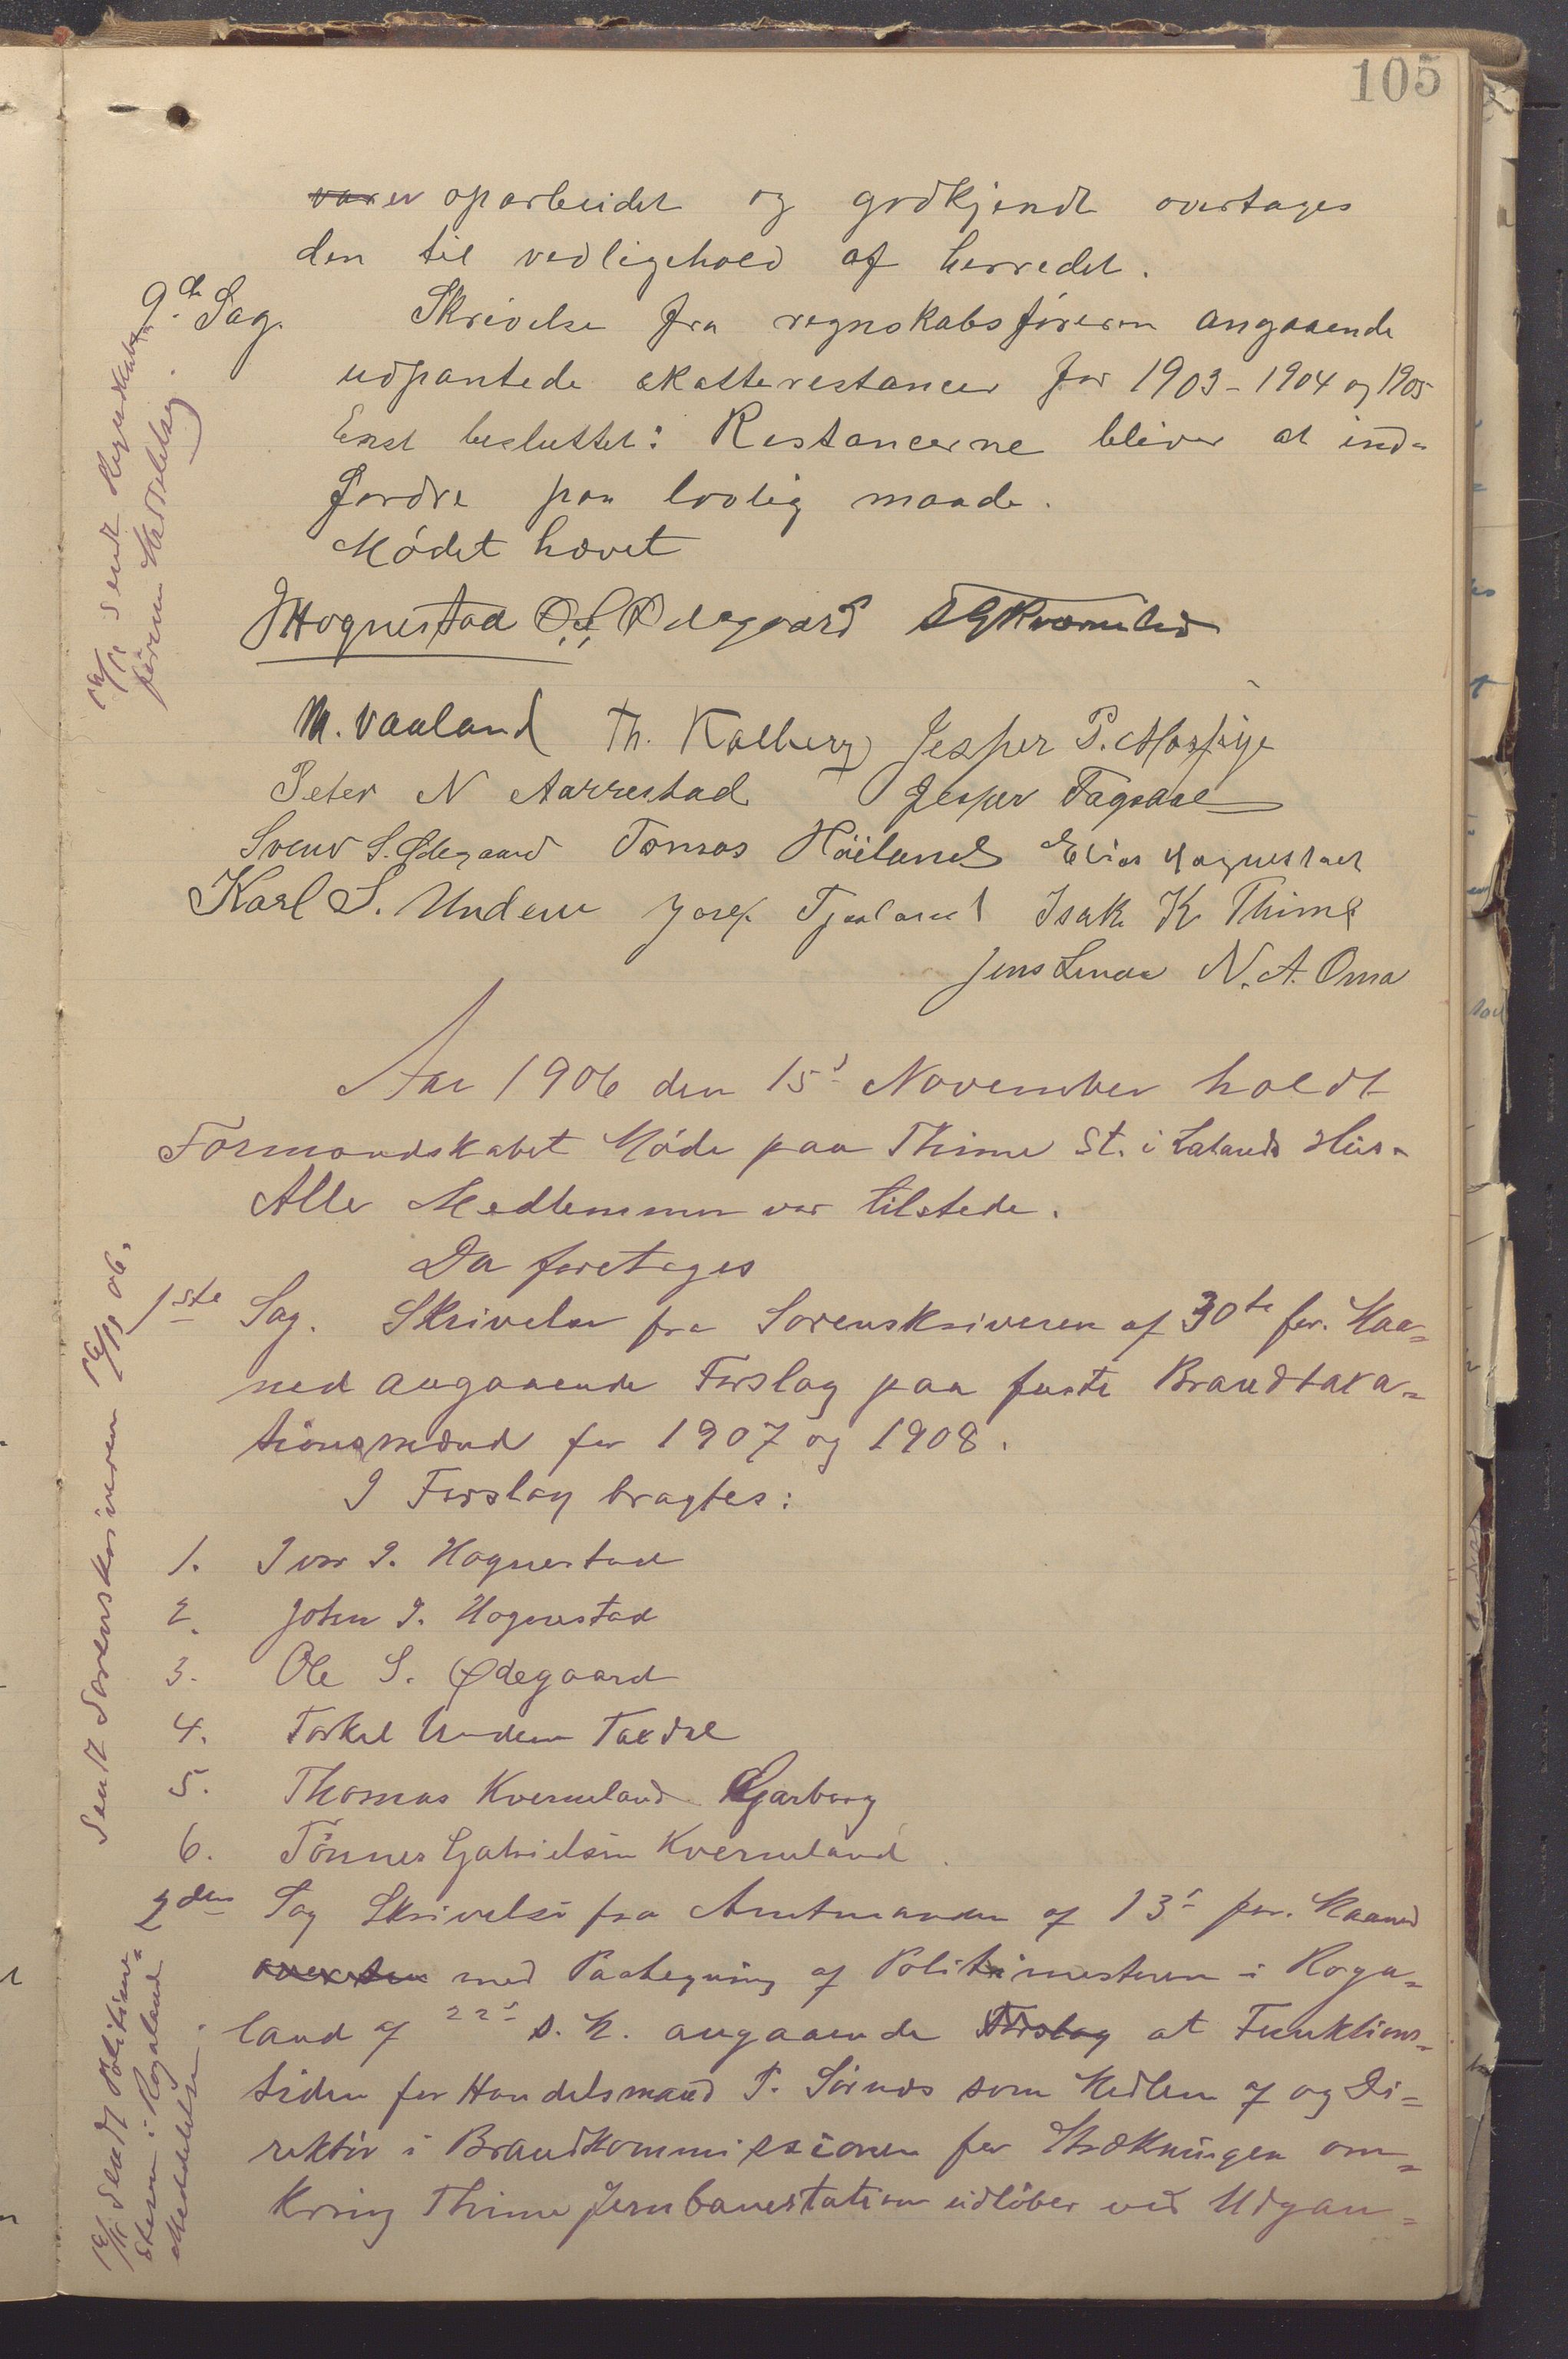 105
er oparbeidet og godkjendt overtages
den til vedligehold af herredet.
9de Sag. Skrivelse fra regnskabsføreren angaaende
udpantede skatterestancer for 1903-1904 og 1905
Enst besluttet: Restancerne bliver at ind=
fordre paa lovlig maade.
Mödet hævet
16/11 sendt Regnskabs=
føreren Meddelelse.
J Hognestad O. S. Ødegaard
M. Vaaland Th. Kalberg Jesper P. Mossige
Peter N Aarrestad Jesper Fagaase
Svend S. Ødegaard Tomas Höiland Elias Hognestad
Karl S. Undem Josef Tjaaland Isak K Thime
Jens Lende N. A. Oma
Aar 1906 den 15s November holdt
Formandskabet Möde paa Thime St. i Lalands Hus.
Alle Medlemmer var tilstede.
Da foretages
1ste Sag. Skrivelse fra Sorenskriveren af 30te for. Maa=
ned angaaende Forslag paa faste Brandtaxa=
tionsmænd for 1907 og 1908.
I Forslag bragtes:
1. Ivar I. Hognestad
2. John I. Hognestad
3. Ole S. Ødegaard
4. Torkel Undem Taxdal
5. Thomas Kverneland Garborg
6. Tönnes Gabrielsen Kverneland
Sendt Sorenskriveren 16/11 06.
2den Sag Skrivelse fra Amtmanden af 13s for. Maaned
med Paategning af Politimesteren i Roga=
land af 22s s. M. angaaende Forslag at Funktions=
tiden for Handelsmand T. Sörnes som Medlem af og Di=
rektör i Brandkommissionen for Strækningen om=
kring Thime Jernbanestation udlöber ved Udgan=
16/11 Sendt Politime=
steren i Rogaland
Meddelelse.